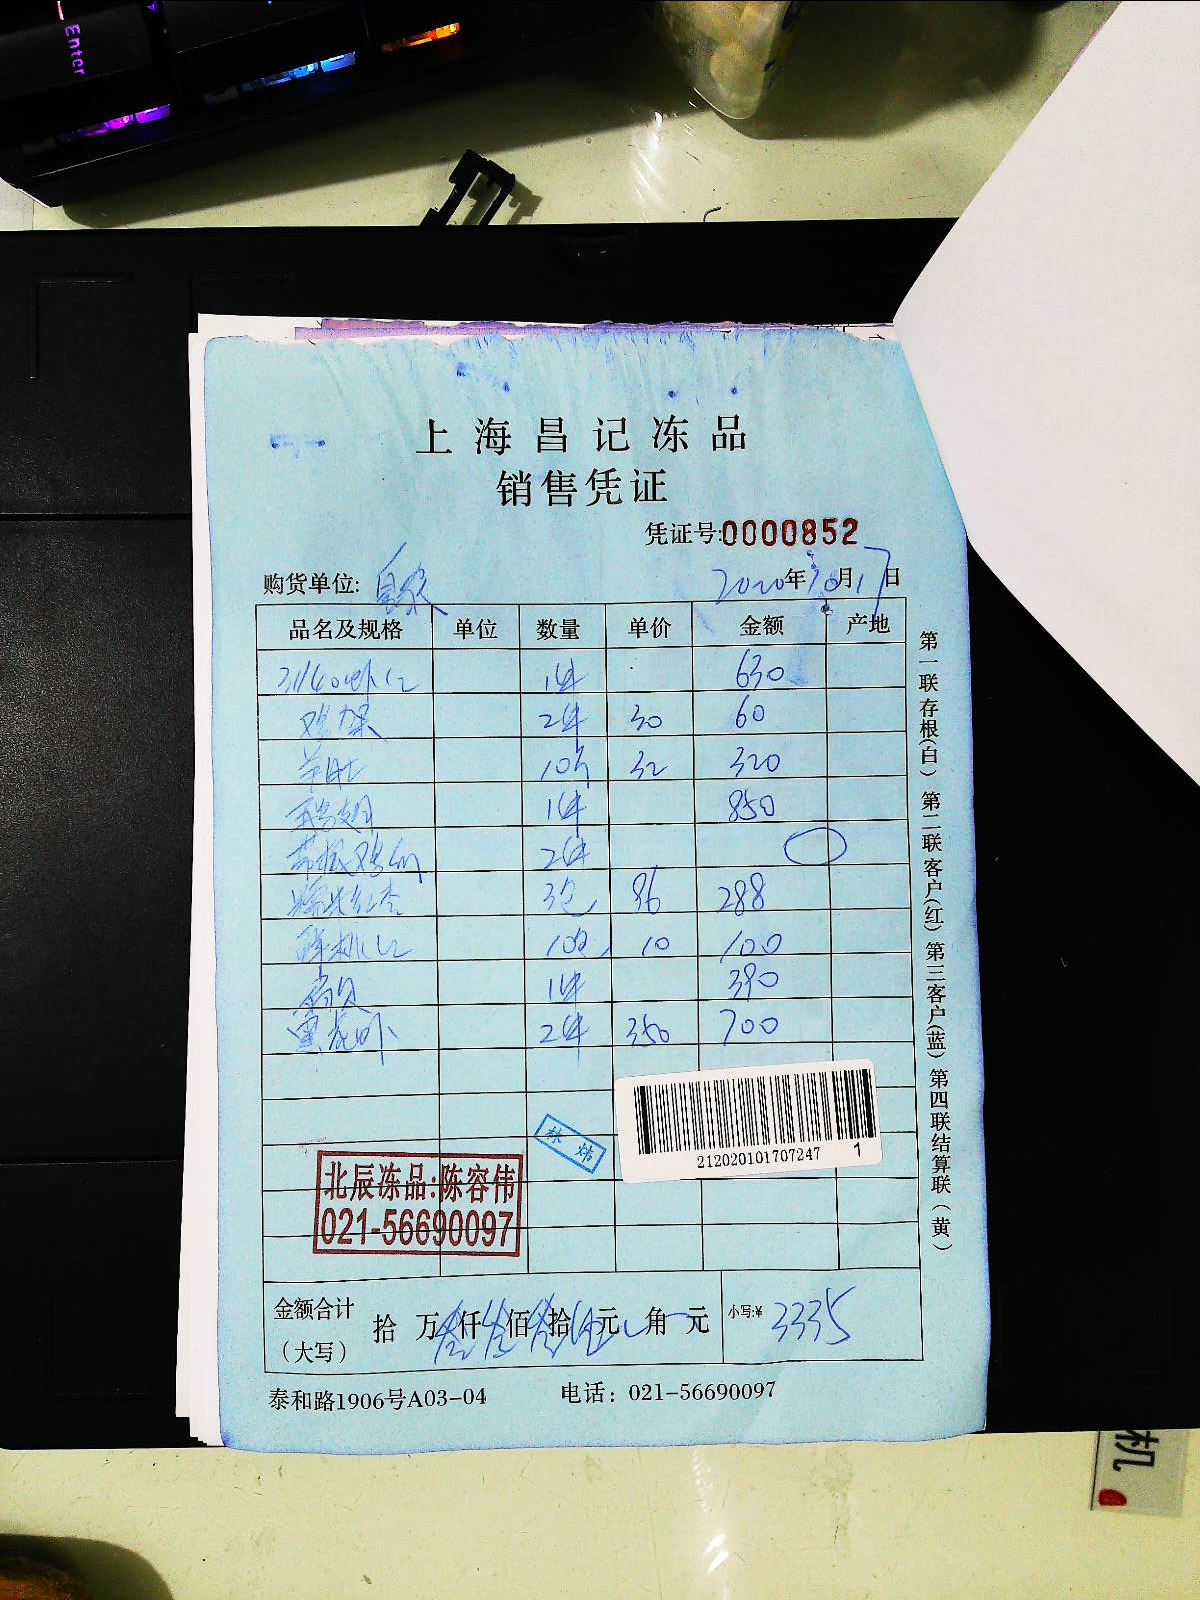 Enter
上海昌记冻品
销售凭证
凭证号:0000852
购货单位:
2020年10月17日
品名及规格 单位 数量 单价 金额 产地
31/40虾仁 1件 630
鸡架 2件 30 60
羊肚 10斤 32 320
1件 850
2件
3包 96 288
10包 10 100
1件 390
黑虎虾 2件 350 700
212020101707247 1
林炜
北辰冻品:陈容伟
021-56690097
金额合计(大写) 拾 万叁仟叁佰叁拾伍元 角 元 小写:¥ 3335
泰和路1906号A03-04 电话：021-56690097
第一联存根(白) 第二联客户(红) 第三客户(蓝) 第四联结算联(黄)
机